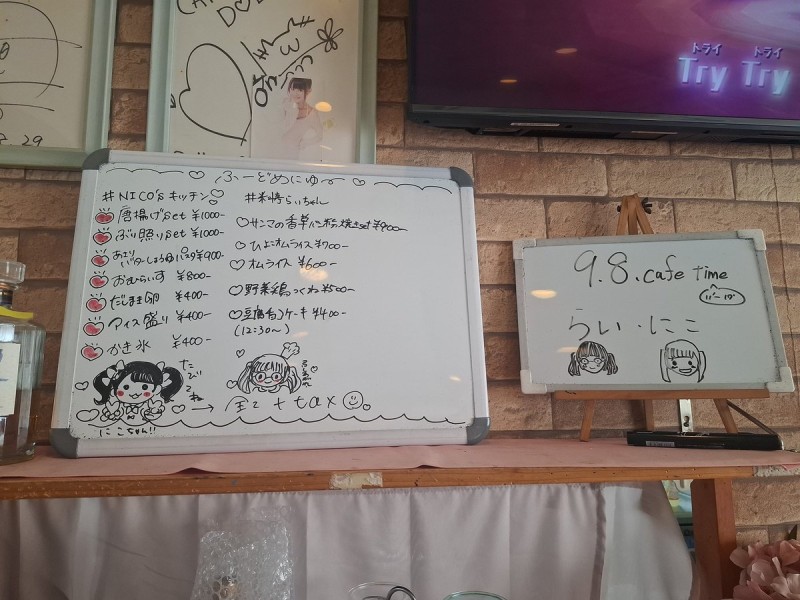 トライ トライ
Try Try
29
ふーどめにゅー
#NICO'sキッチン
唐揚げset ¥1000-
ぶり照りset ¥1000-
あさりバターしょうゆパスタ ¥900-
おむらいす ¥800-
だしまき卵 ¥400-
アイス盛り ¥400-
かき氷 ¥400-
たびてね
にこちゃん!!
らいちゃん
サンマの香草パン粉焼きset ¥900-
ひよこオムライス ¥700-
オムライス ¥600-
野菜鶏つくね ¥500-
豆腐ケーキ ¥400-
(12:30~)
→ 全て + tax
9.8. cafe time
11-17
らい・にこ